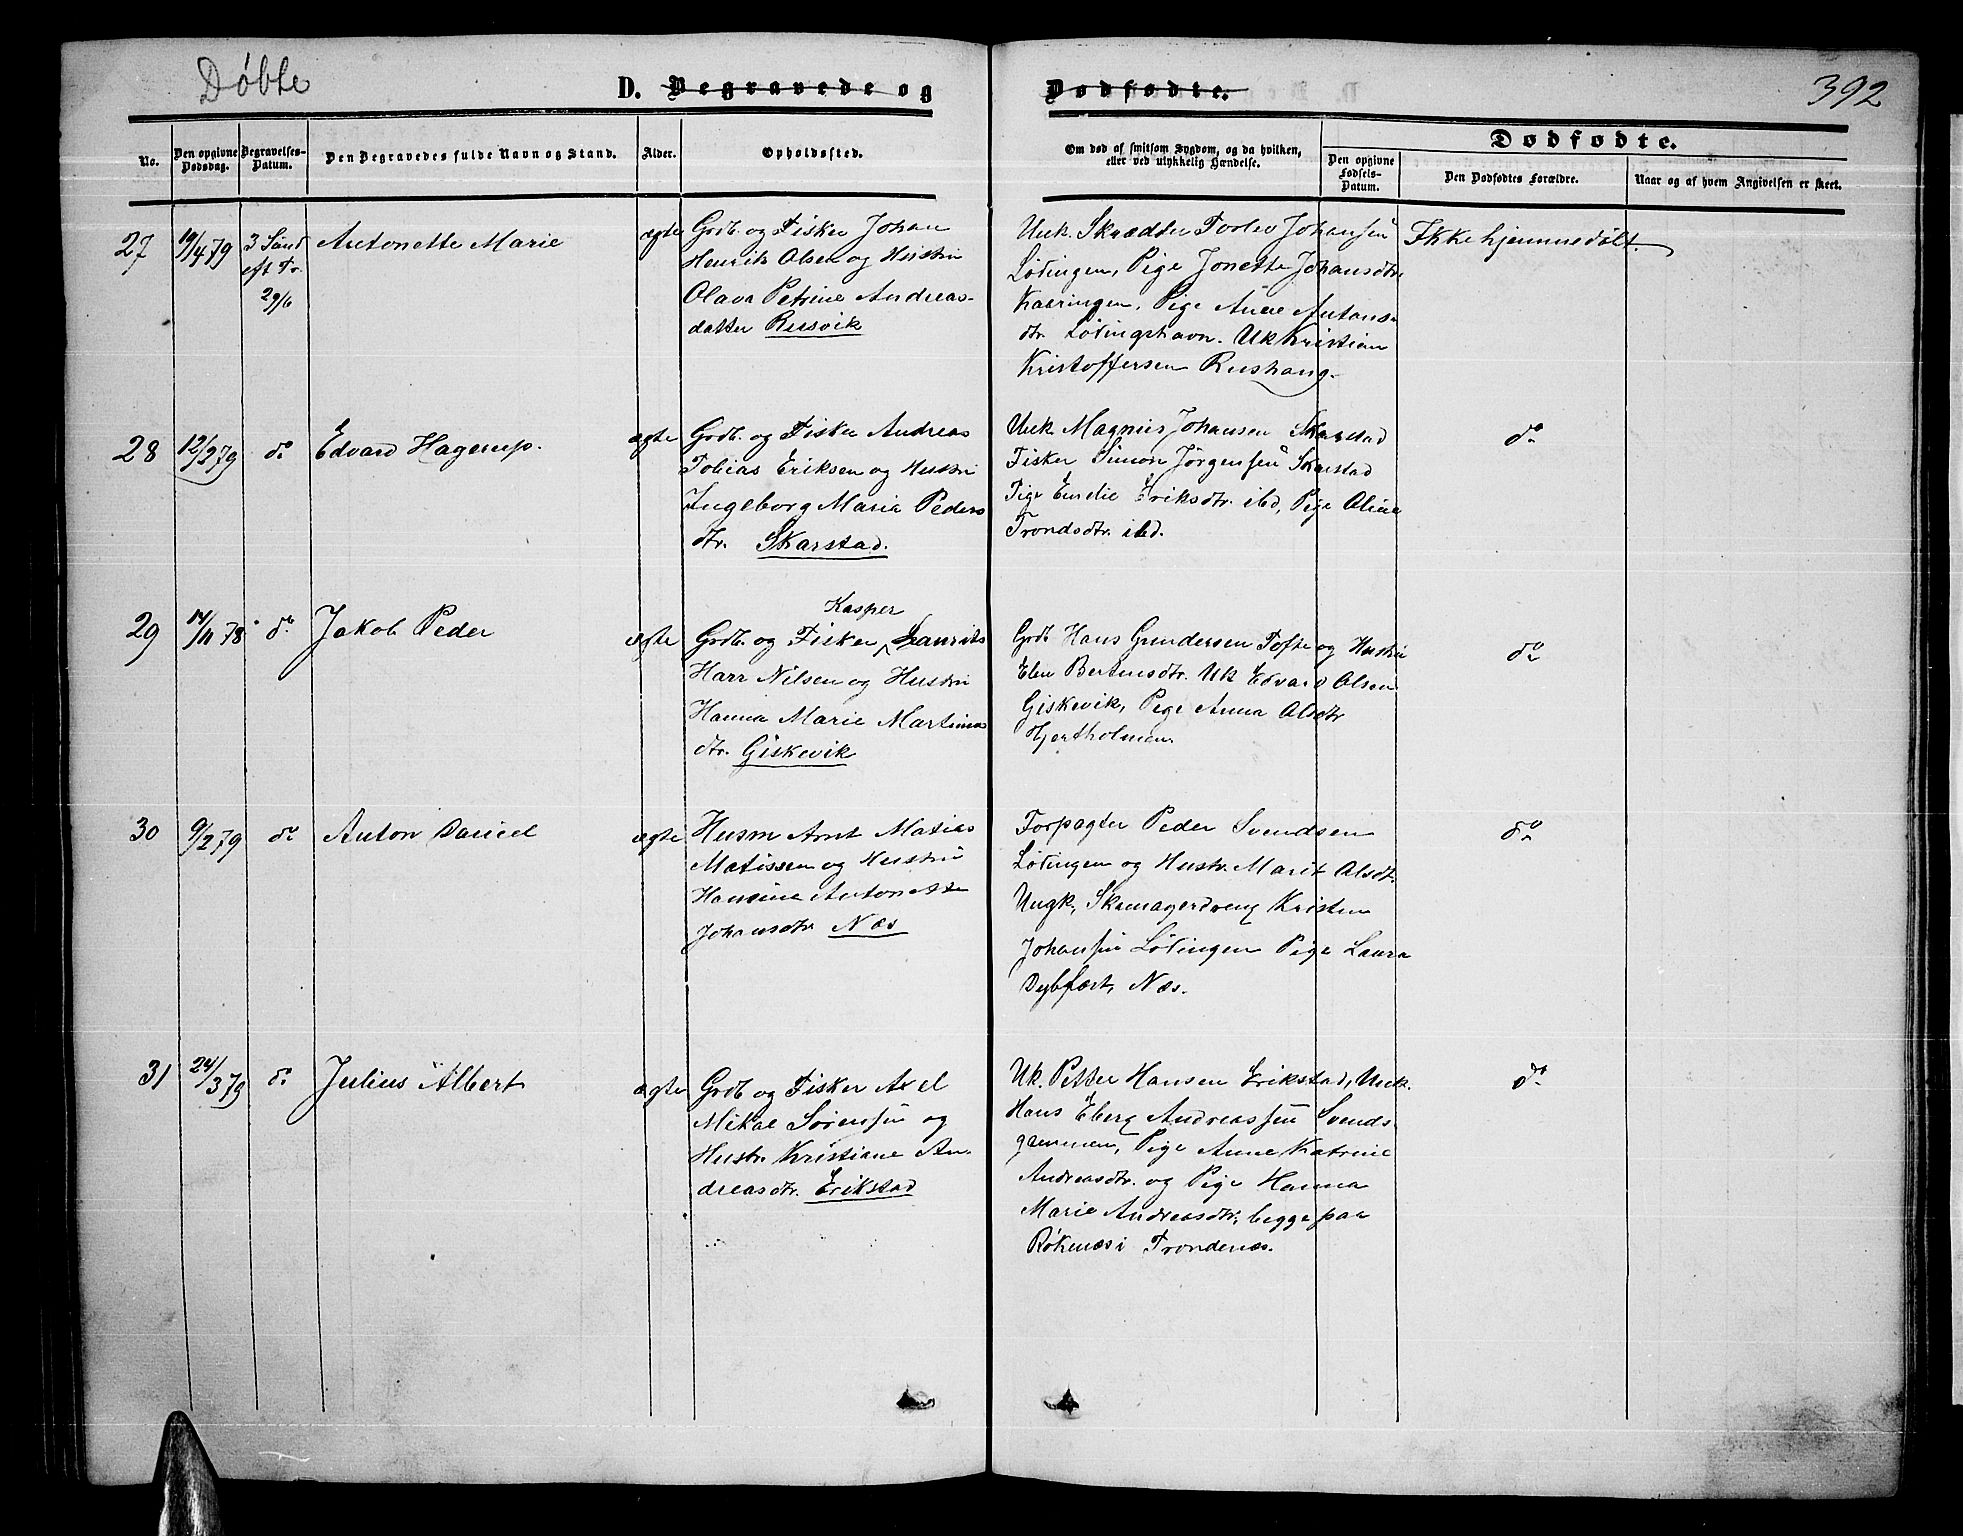 Døbte
D. Begravede og
Dødfødte.
392
No.
Den opgivne Dødsdag.
Begravelses-Datum.
Den Begravedes fulde Navn og Stand.
Alder.
Opholdssted.
Om død af smitsom Sygdom, og da hvilken,
eller ved ulykkelig Hændelse.
Dødfødte.
Den opgivne Fødsels-Datum.
Den Dødfødtes Forældre.
Naar og af hvem Angivelsen er skeet.
27
19/4 79
3 Sønd
eft Tr.
29/6
Antonette Marie
ægte
Grdb. og Fisker Johan
Henrik Olsen og Hustru
Olava Petrine Andreas-
datter Rusvik
Unk. Skrædder Torlev Johansen
Lødingen, Pige Jonette Johansdtr
Kaaringen, Pige Anne Antons-
dtr. Lødingshavn. Uk Kristian
Kristoffersen Rushaug.
Ikke hjemmedøbt.
28
12/2 79
do
Edvard Hagerup.
ægte
Grdb. og Fisker Andreas
Tobias Eriksen og Hustru
Ingeborg Maria Peders
dtr. Skarstad.
Unk. Magnus Johansen Skarstad
Fisker Simon Jörgensen Skarstad
Pige Emelie Eriksdtr. ibd, Pige Oline
Trondsdtr. ibd.
do
29
14/11 78
do
Jakob Peder
ægte
Kasper
Grdb. og Fisker Laurits
Harr Nilsen og Hustru
Hanna Marie Martinus
dtr. Giskevik
Grdb. Hans Gundersen Tofte og Hustru
Elen Bertinsdtr. Uk Edvard Olsen
Giskevik, Pige Anna Olsdtr
Hjertholmen.
do
30
9/2 79
do
Anton Daniel
ægte
Husm Arnt Matias
Matissen og Hustru
Hansine Antonette
Johansdtr Næs
Forpagter Peder Svendsen
Lødingen og Hustr. Marit Olsdt.
Ungk. Skomagerdreng Kristen
Johansen Lødingen Pige Laura
Dybfæst, Næs.
do
31
24/3 79
do
Julius Albert
ægte
Grdb og Fisker Axel
Mikal Sørensen og
Hustr. Kristiane An-
dreasdtr. Erikstad
Uk. Petter Hansen Erikstad, Unk.
Hans Eberg Andreassen Svends
gammen, Pige Anne Katrine
Andreasdtr. og Pige Hanna
Marie Andreasdtr, begge paa
Røkenæs i Trondenæs.
do